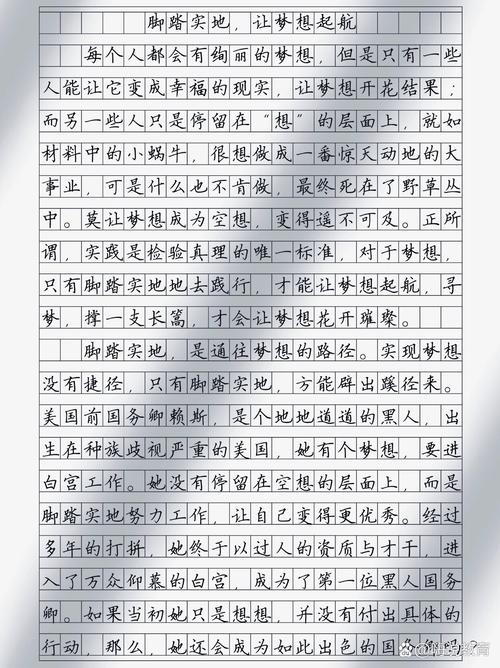 脚踏实地，让梦想起航
每个人都会有绚丽的梦想，但是只有一些
人能让它变成幸福的现实，让梦想开花结果；
而另一些人只是停留在“想”的层面上，就如
材料中的小蜗牛，很想做成一番惊天动地的大
事业，可是什么也不肯做，最终死在了野草丛
中。莫让梦想成为空想，变得遥不可及。正所
谓，实践是检验真理的唯一标准，对于梦想，
只有脚踏实地地去践行，才能让梦想起航，寻
梦，撑一支长篙，才会让梦想花开璀璨。
脚踏实地，是通往梦想的路径。实现梦想
没有捷径，只有脚踏实地，方能辟出蹊径来。
美国前国务卿赖斯，是个地地道道的黑人，出
生在种族歧视严重的美国，她有个梦想，要进
白宫工作。她没有停留在空想的层面上，而是
脚踏实地努力工作，让自己变得更优秀。经过
多年的打拼，她终于以过人的资质与才干，进
入了万众仰慕的白宫，成为了第一位黑人国务
卿。如果当初她只是想想，并没有付出具体的
行动，那么，她还会成为如此出色的国务卿吗？